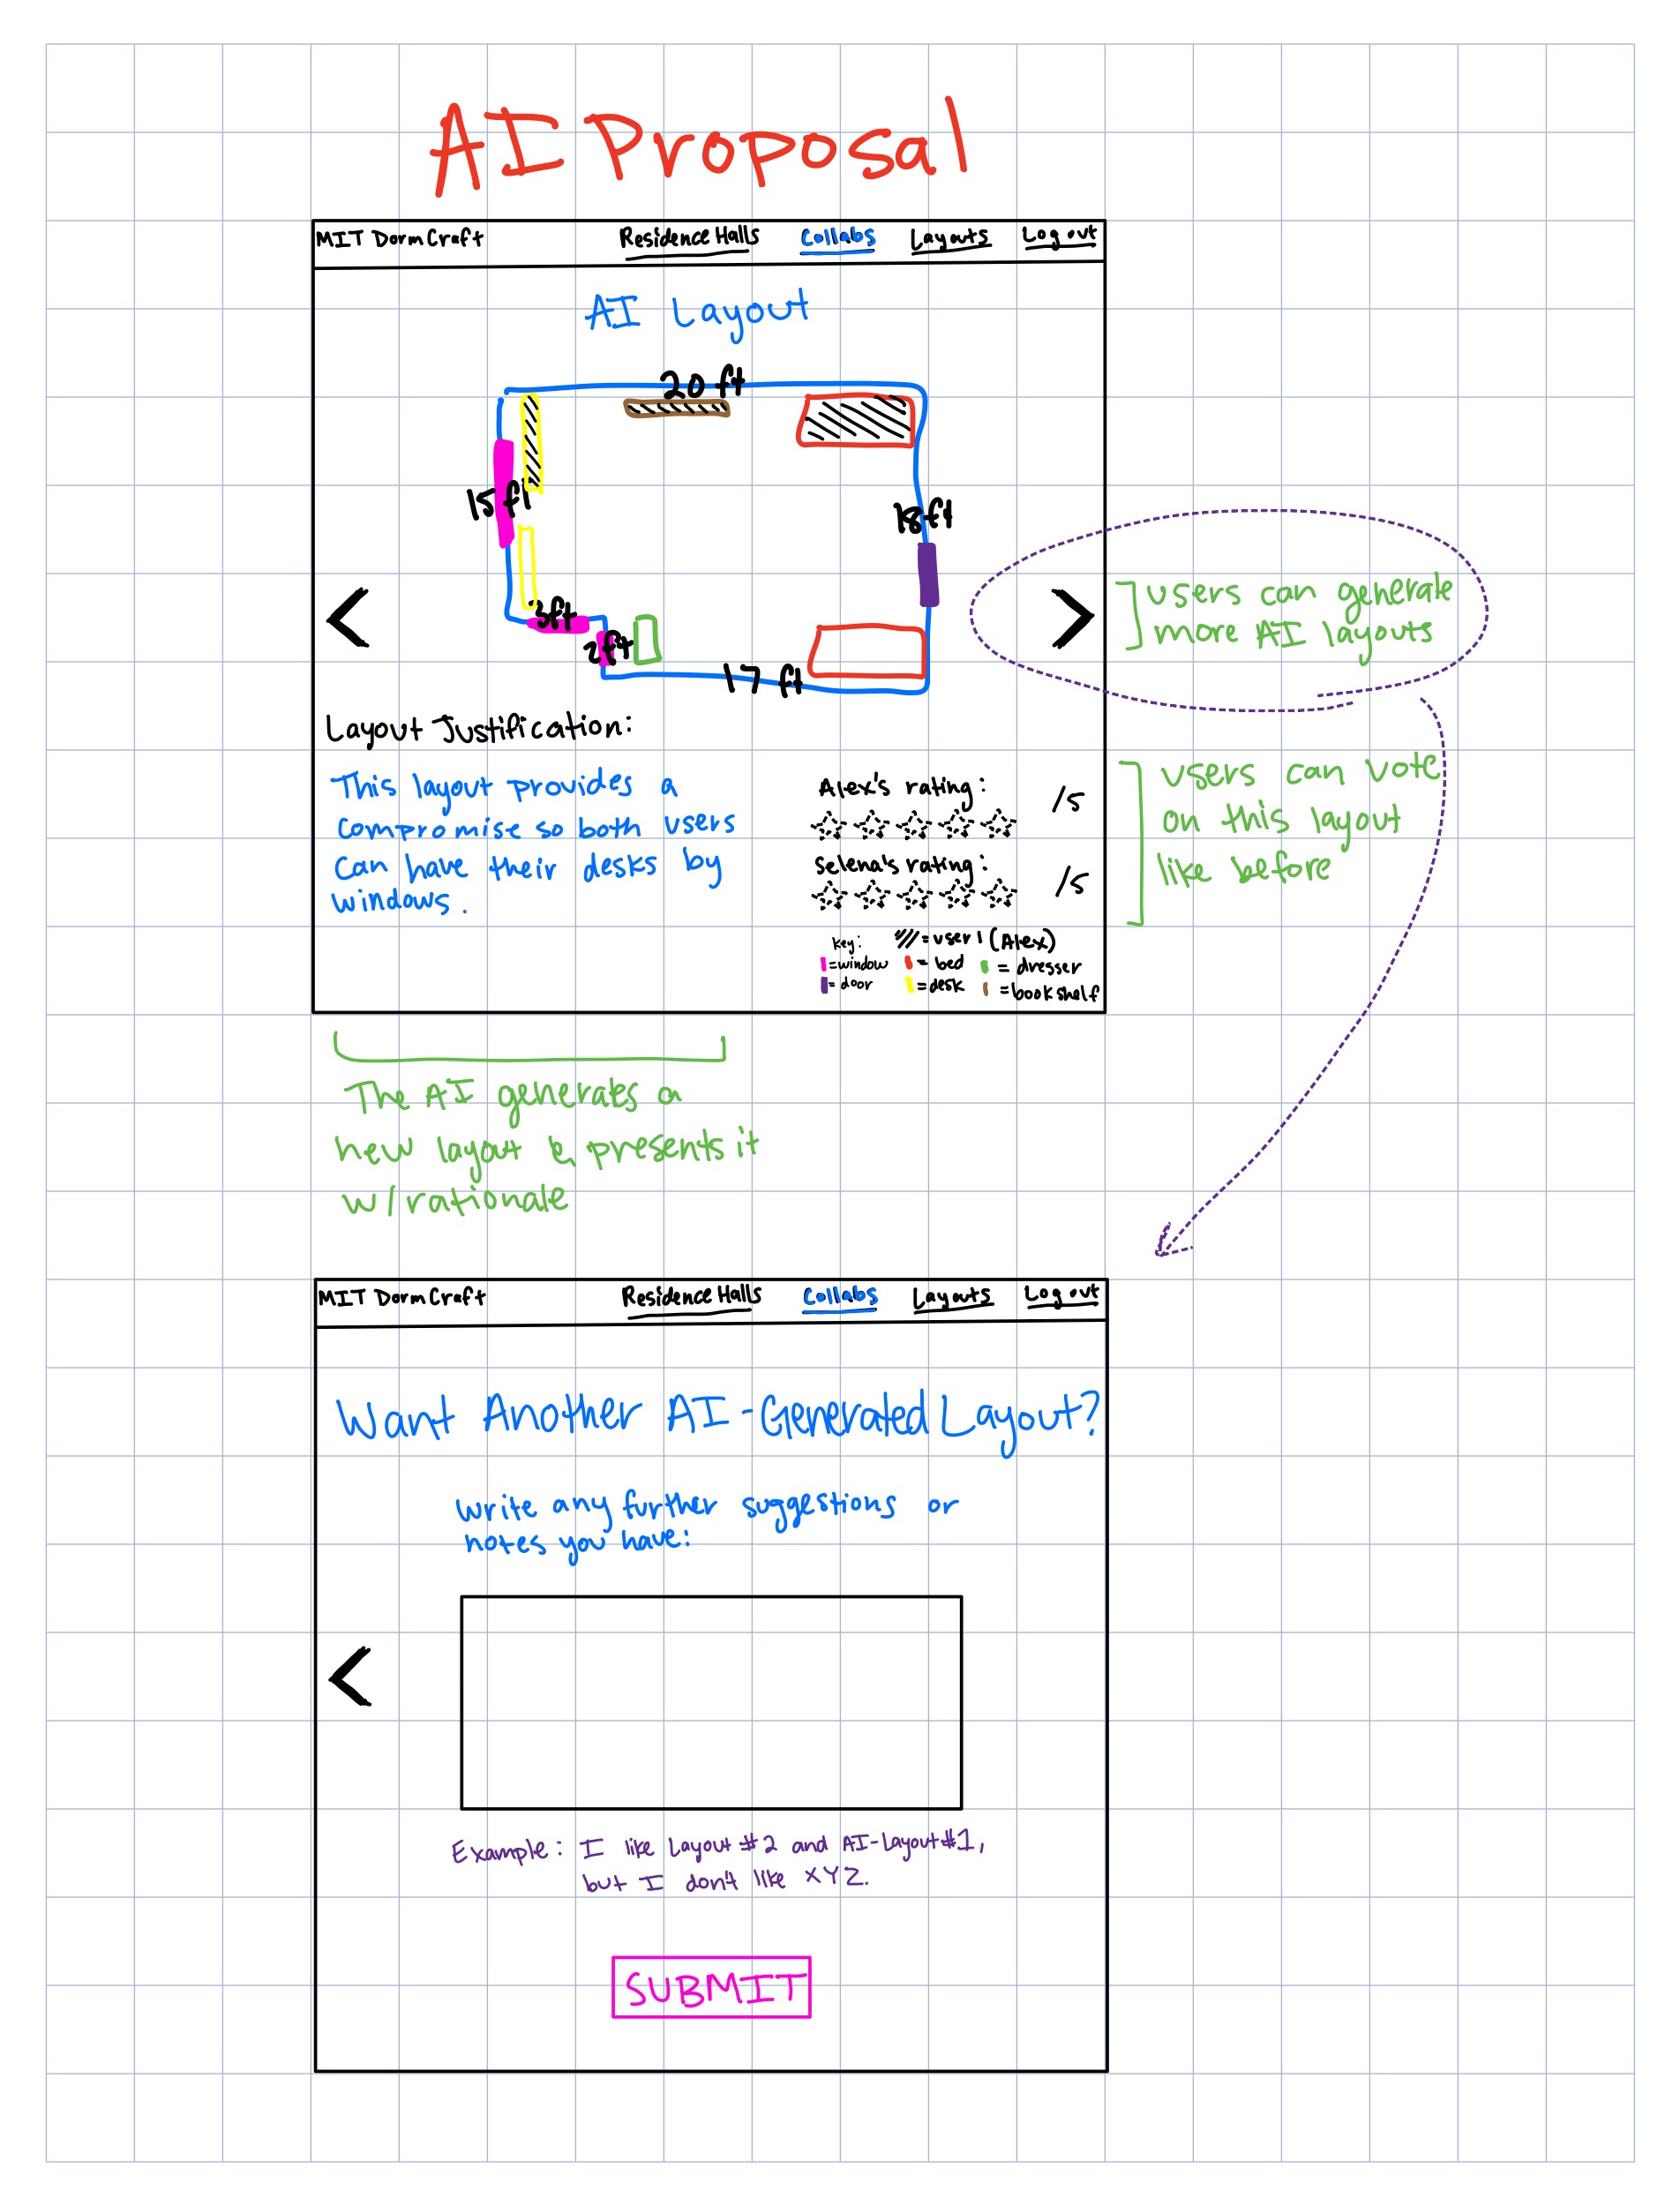 AI Proposal
MIT DormCraft Residence Halls Collabs Layouts Log out
AI Layout
20 ft
15 ft
18 ft
3ft
2ft
17 ft
users can generate
more AI layouts
Layout Justification:
This layout provides a
compromise so both users
can have their desks by
windows.
Alex's rating: /5
Selena's rating: /5
users can vote
on this layout
like before
key: = user 1 (Alex)
= window = bed = dresser
= door = desk = bookshelf
The AI generates a
new layout & presents it
w/ rationale
MIT DormCraft Residence Halls Collabs Layouts Log out
Want Another AI-Generated Layout?
write any further suggestions or
notes you have:
Example: I like Layout #2 and AI-Layout #1,
but I don't like XYZ.
SUBMIT